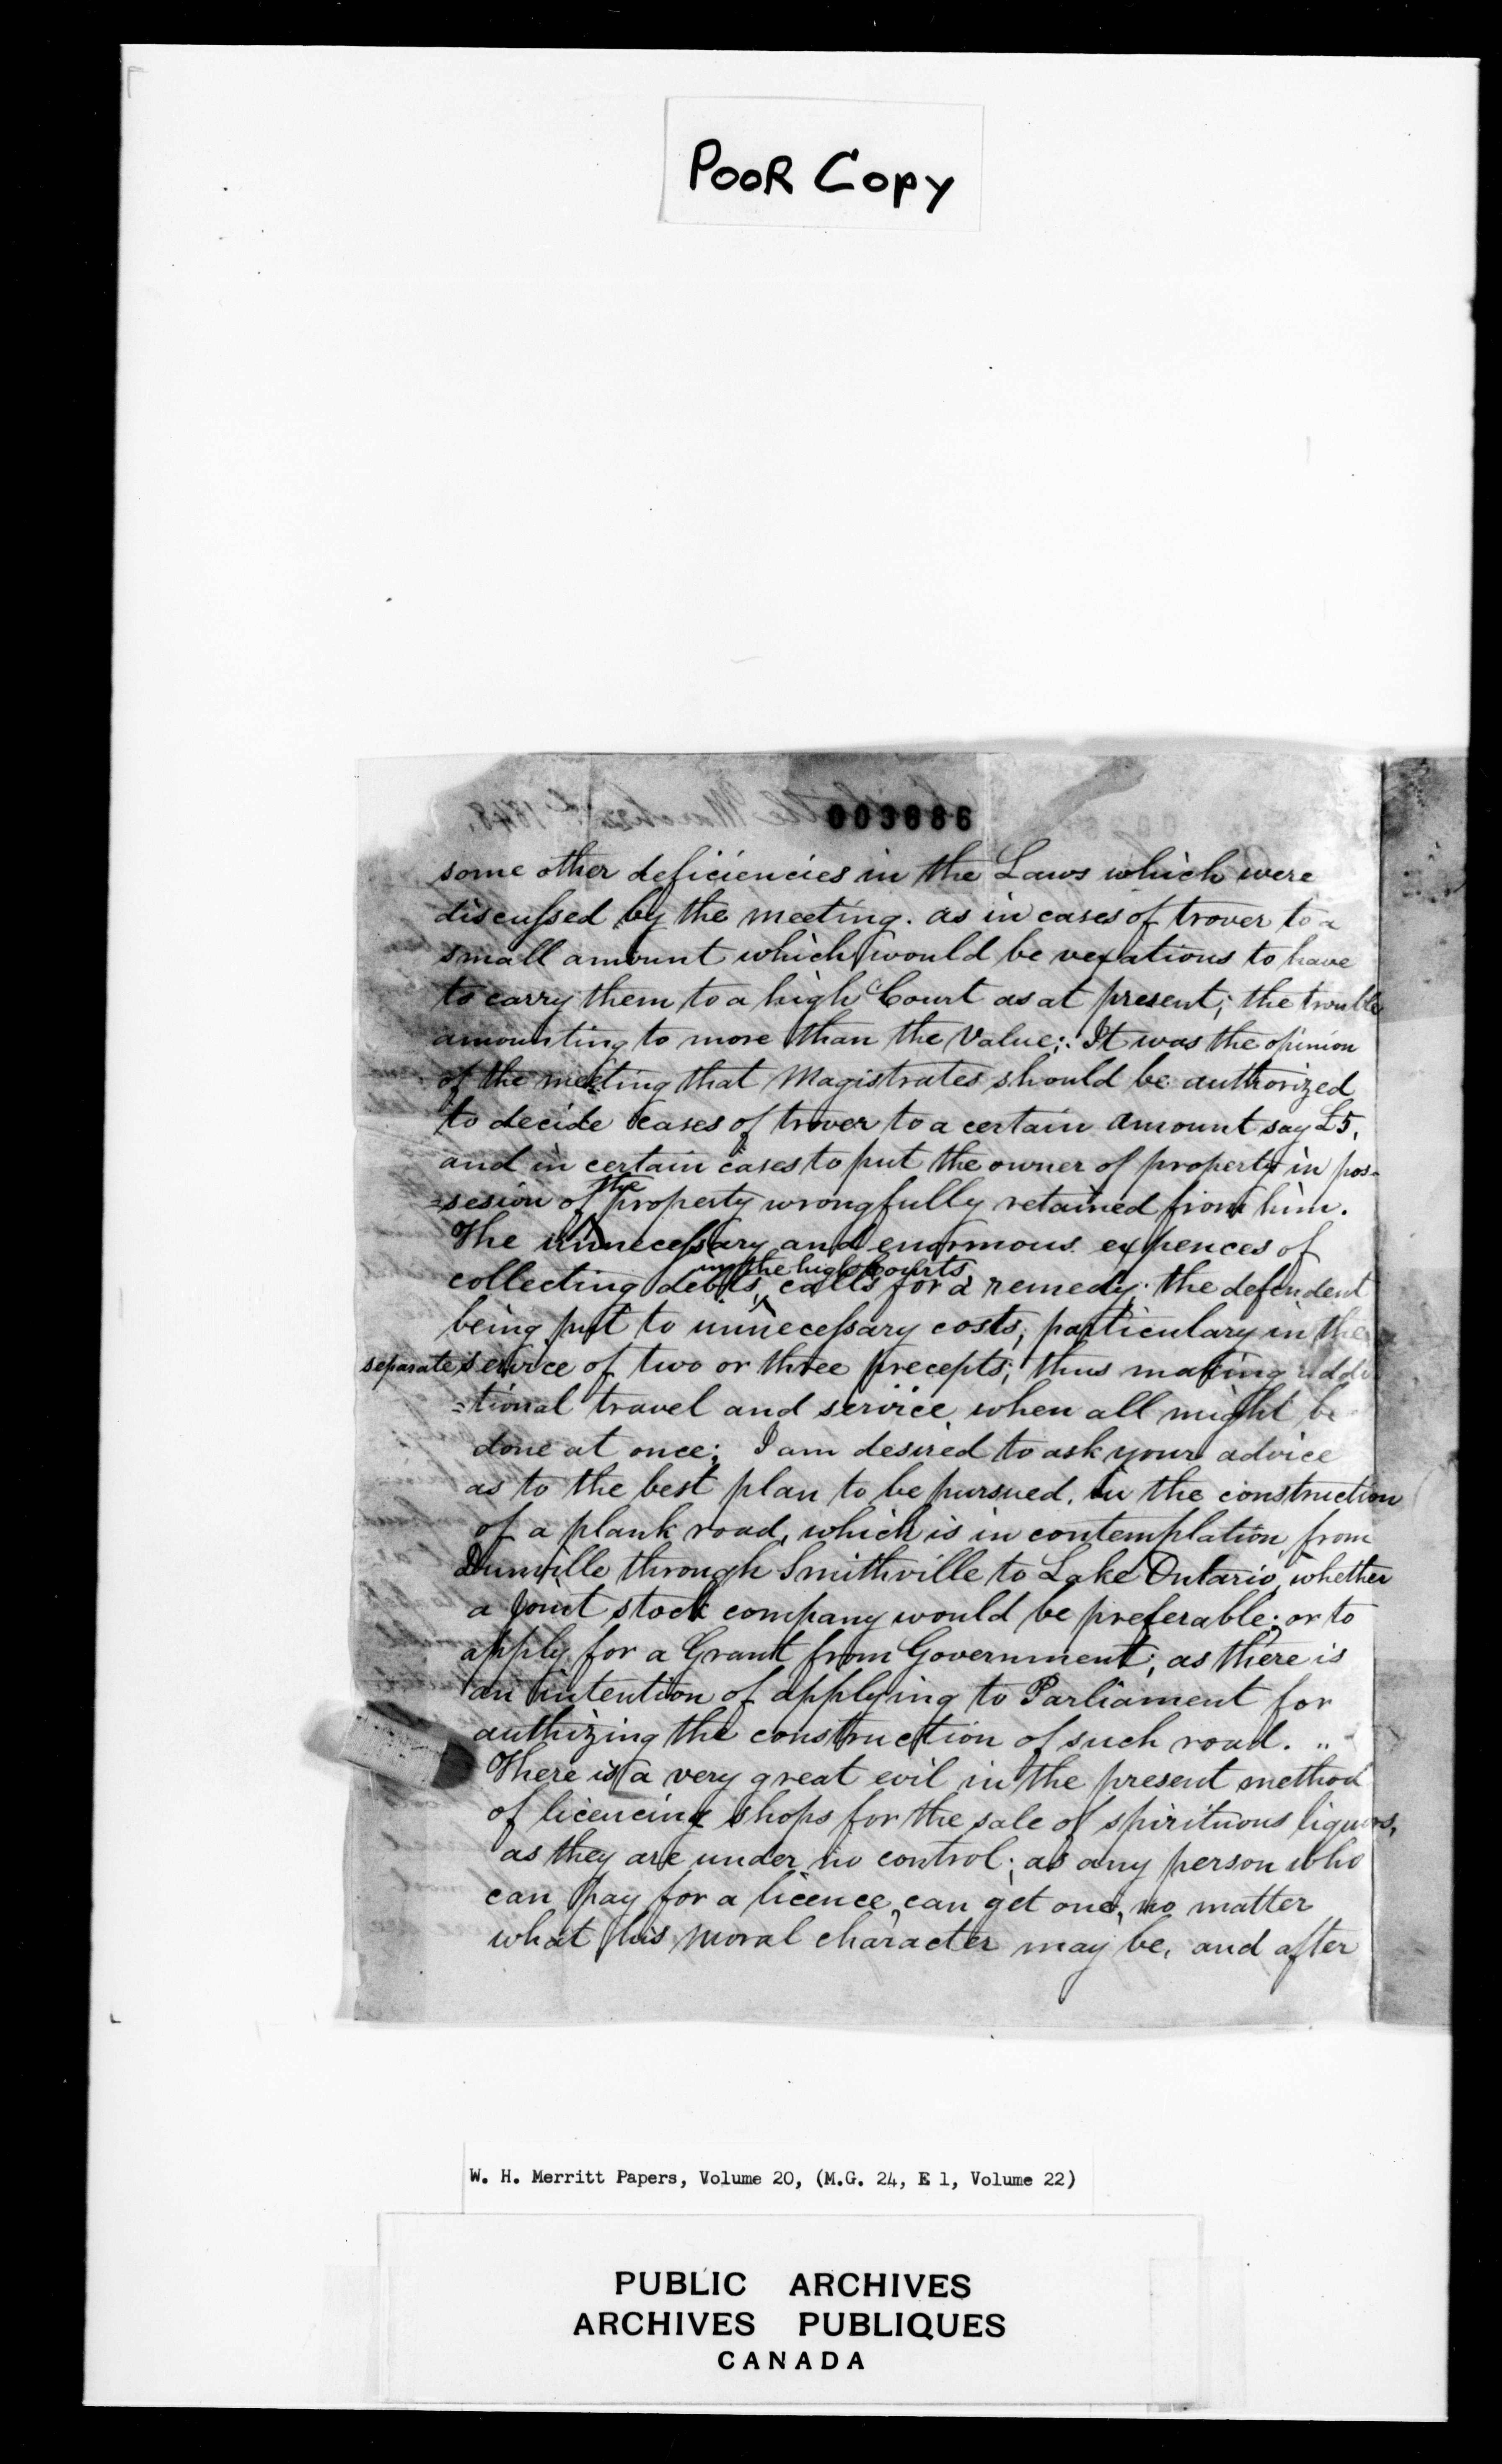 POOR COPY
003686
some other deficiencies in the Laws which were
discussed by the meeting. as in cases of trover to a
small amount which would be vexatious to have
to carry them to a high Court as at present; the trouble
amounting to more than the Value; It was the opinion
of the meeting that Magistrates should be authorized
to decide cases of trover to a certain amount say £5,
and in certain cases to put the owner of property in pos-
=sesion of the property wrongfully retained from him.
The unnecessary and enormous expences of
in the high Courts
collecting debts, calls for a remedy. the defendent
being put to unnecessary costs; particulary in the
separate service of two or three precepts; thus making addi
=tional travel and service when all might be
done at once; I am desired to ask your advice
as to the best plan to be pursued. in the construction
of a plank road, which is in contemplation from
Dunville through Smithville to Lake Ontario, whether
a Joint stock company would be preferable; or to
apply for a Grant from Government; as there is
an intention of applying to Parliament for
authizing the construction of such road. "
There is a very great evil in the present method
of licencing shops for the sale of spirituous liquors,
as they are under no control; as any person who
can pay for a licence, can get one, no matter
what his moral character may be, and after
W. H. Merritt Papers, Volume 20, (M.G. 24, E 1, Volume 22)
PUBLIC ARCHIVES
ARCHIVES PUBLIQUES
CANADA